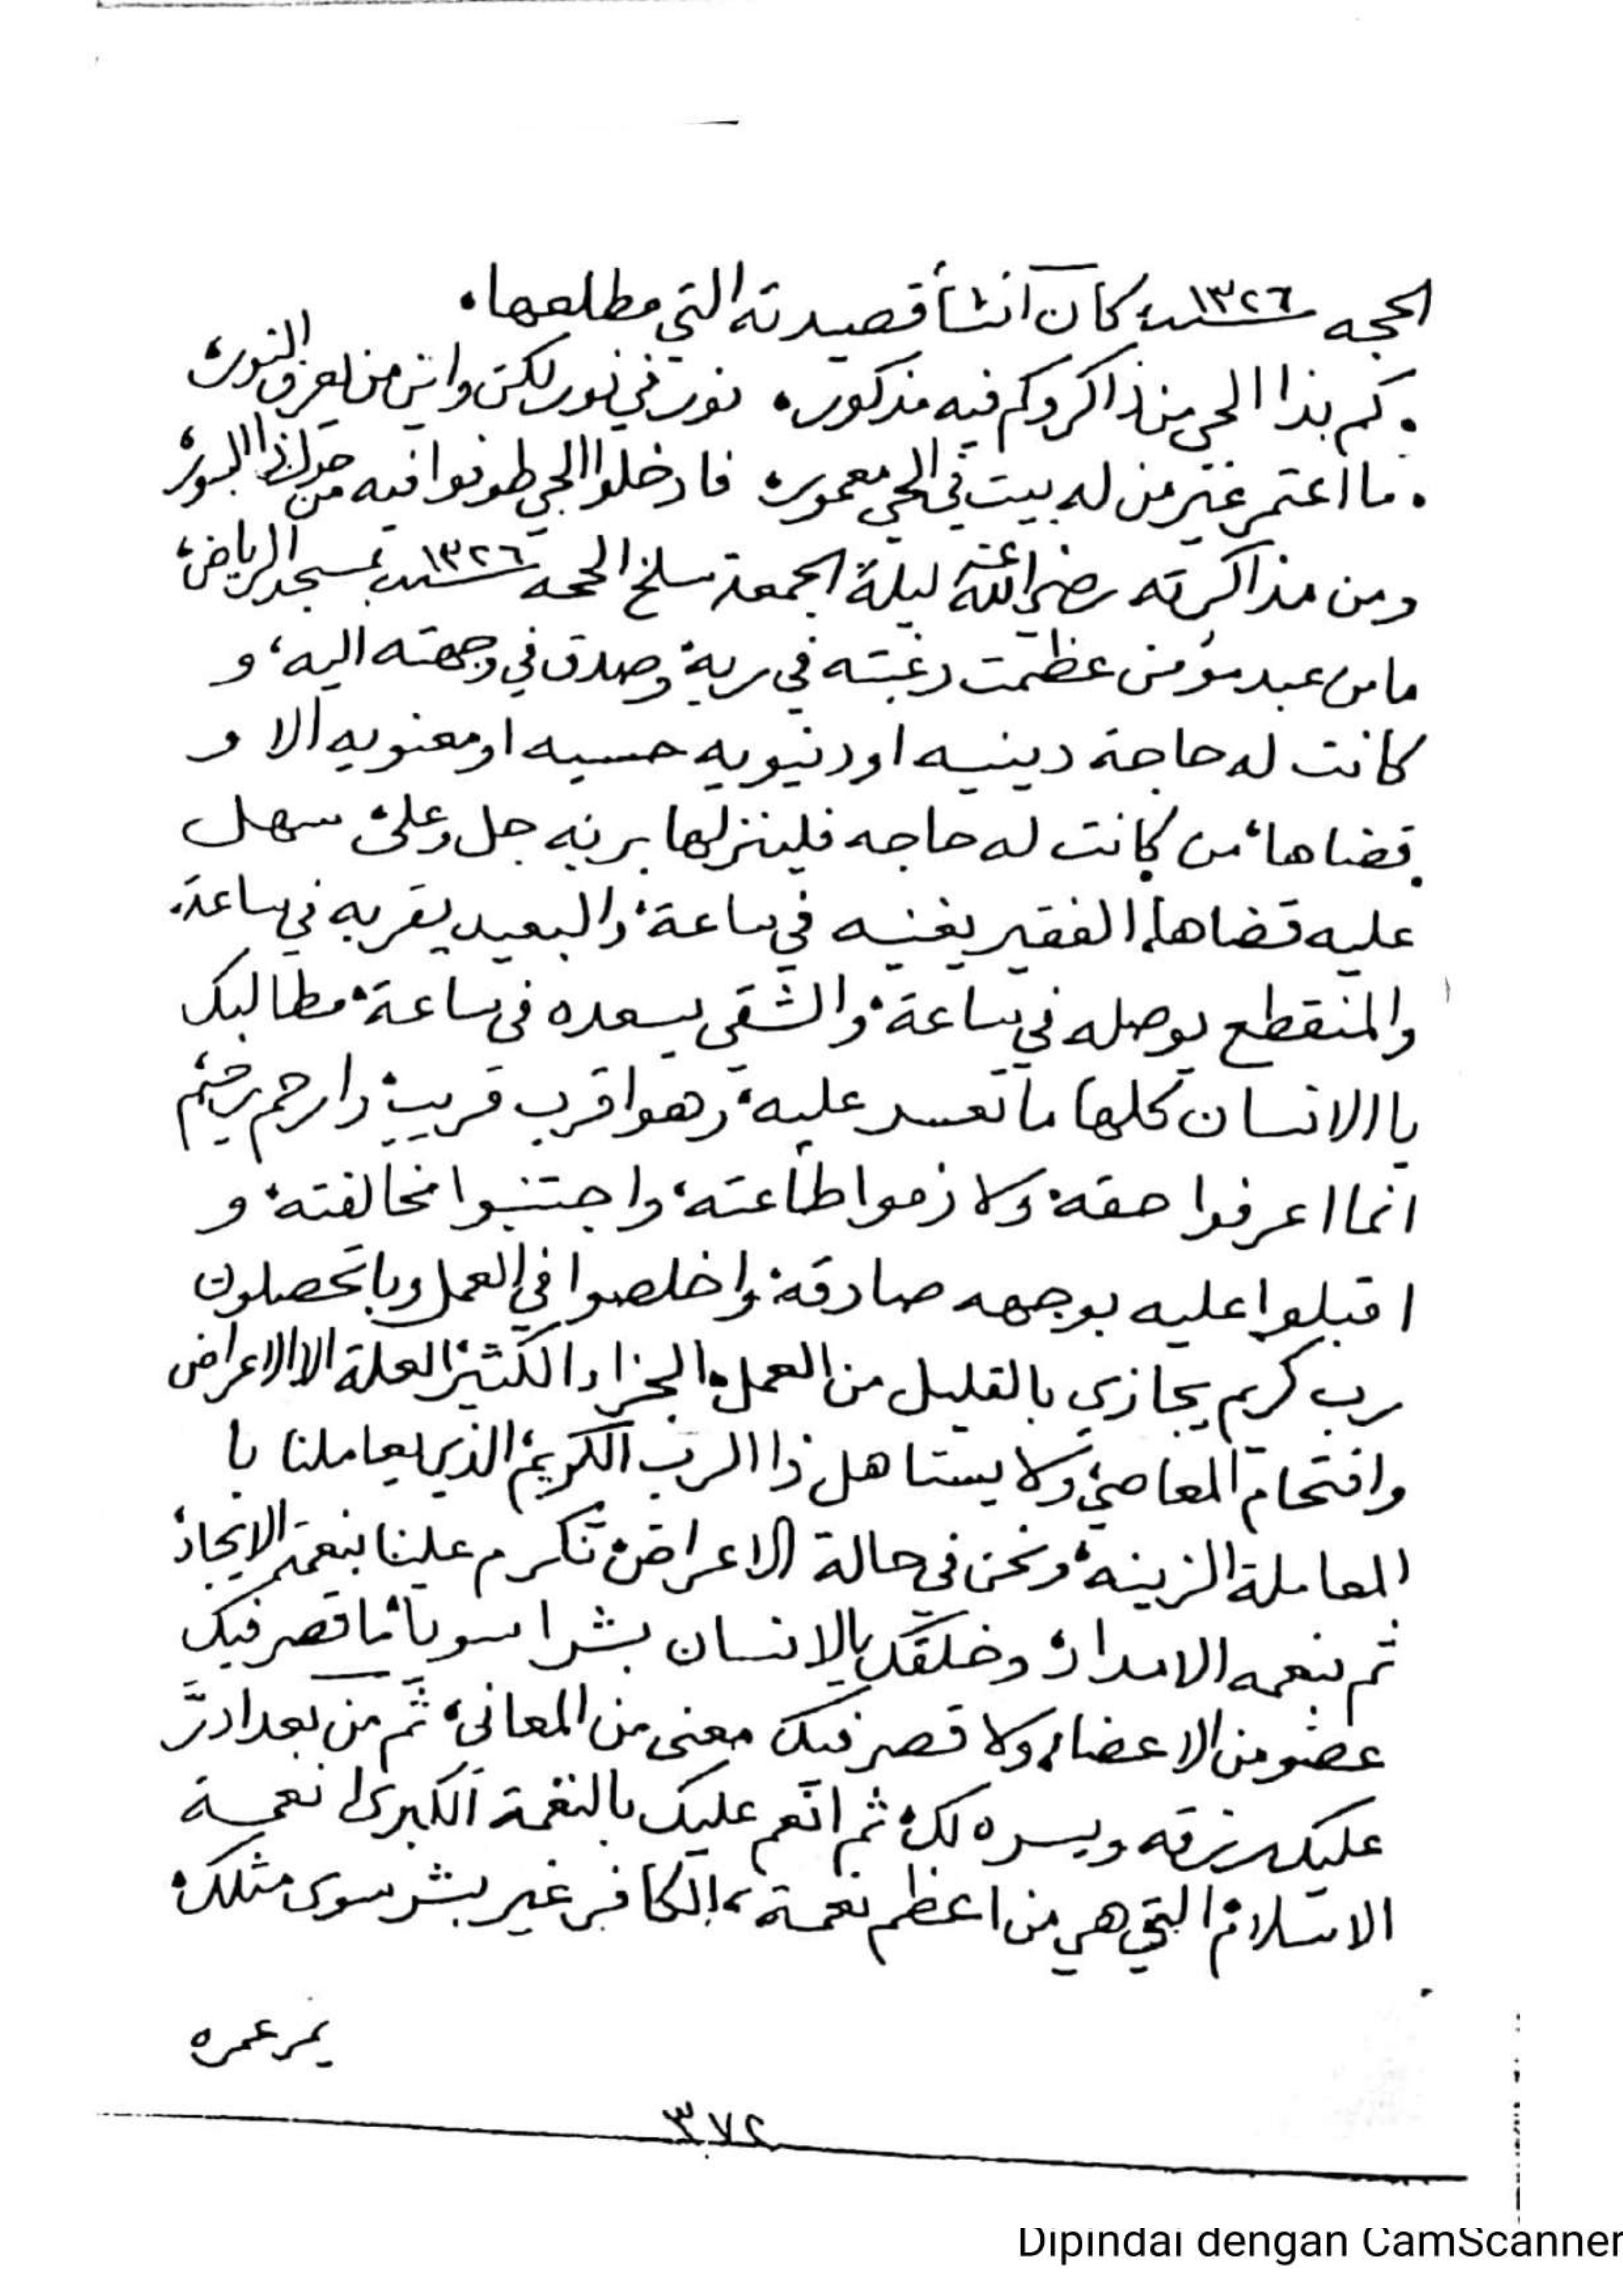 الحجه سنة ١٣٢٦ كان انشأ قصيدته التي مطلعها.
. كم بذا الحي من ذاكر وكم فيه مذكور. نور في نور لكن واين من يعرف النور،
. ما اعتمر غير من له بيت في الحي معمور، فادخلوا الحي طوفوا فيه من حول ذا السور،
ومن مذاكرته رضي الله عنه ليلة الجمعة سلخ الحجه سنة ١٣٢٦ بمسجد الرياض،
مامن عبد مؤمن عظمت رغبته في ربه، وصدق في وجهته اليه، و
كانت له حاجة دينيه او دنيويه حسيه او معنويه الا و
قضاها، من كانت له حاجه فلينزلها بربه جل وعلى، سهل
عليه قضاها، الفقير يغنيه في ساعة، والبعيد يقربه في ساعة،
والمنقطع يوصله في ساعة، والشقي يسعده في ساعة، مطالبك
يا الانسان كلها ما تعسر عليه، وهو اقرب قريب، وارحم رحيم،
انما اعرفوا حقه، ولازموا طاعته، واجتنبوا مخالفته، و
اقبلوا عليه بوجهه صادقة، واخلصوا في العمل وباتحصلون
رب كريم يجازي بالقليل من العمل، الجزاء الكثير، العلة الا الاعراض
واقتحام المعاصي، ولا يستاهل ذا الرب الكريم، الذي يعاملنا با
المعاملة الزينه، ونحن في حالة الاعراض، تكرم علينا بنعمة الايجاد،
ثم بنعمه الامداد، وخلقك يالانسان بشرا سويا، ما قصر فيك
عضو من الاعضاء، ولا قصر فيك معنى من المعاني، ثم من بعد ادرَّ
عليك رزقه ويسره لك، ثم انعم عليك بالنعمة الكبرى، نعمة
الاسلام، التي هي من اعظم نعمة، الكافر غير بشر سوى مثلك،
يمر عمره
٣٧٢
Dipindai dengan CamScanner